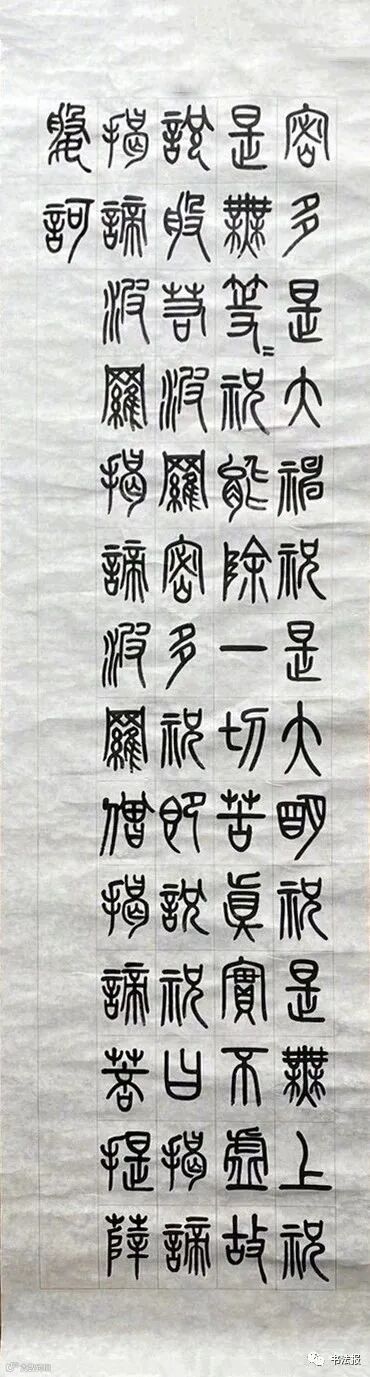 密多是大神祝是大明祝是無上祝
是無等〻祝能除一切苦眞實不虛故
說般若波羅密多祝即說祝曰揭諦
揭諦波羅揭諦波羅僧揭諦菩提薩
婆訶
书法报